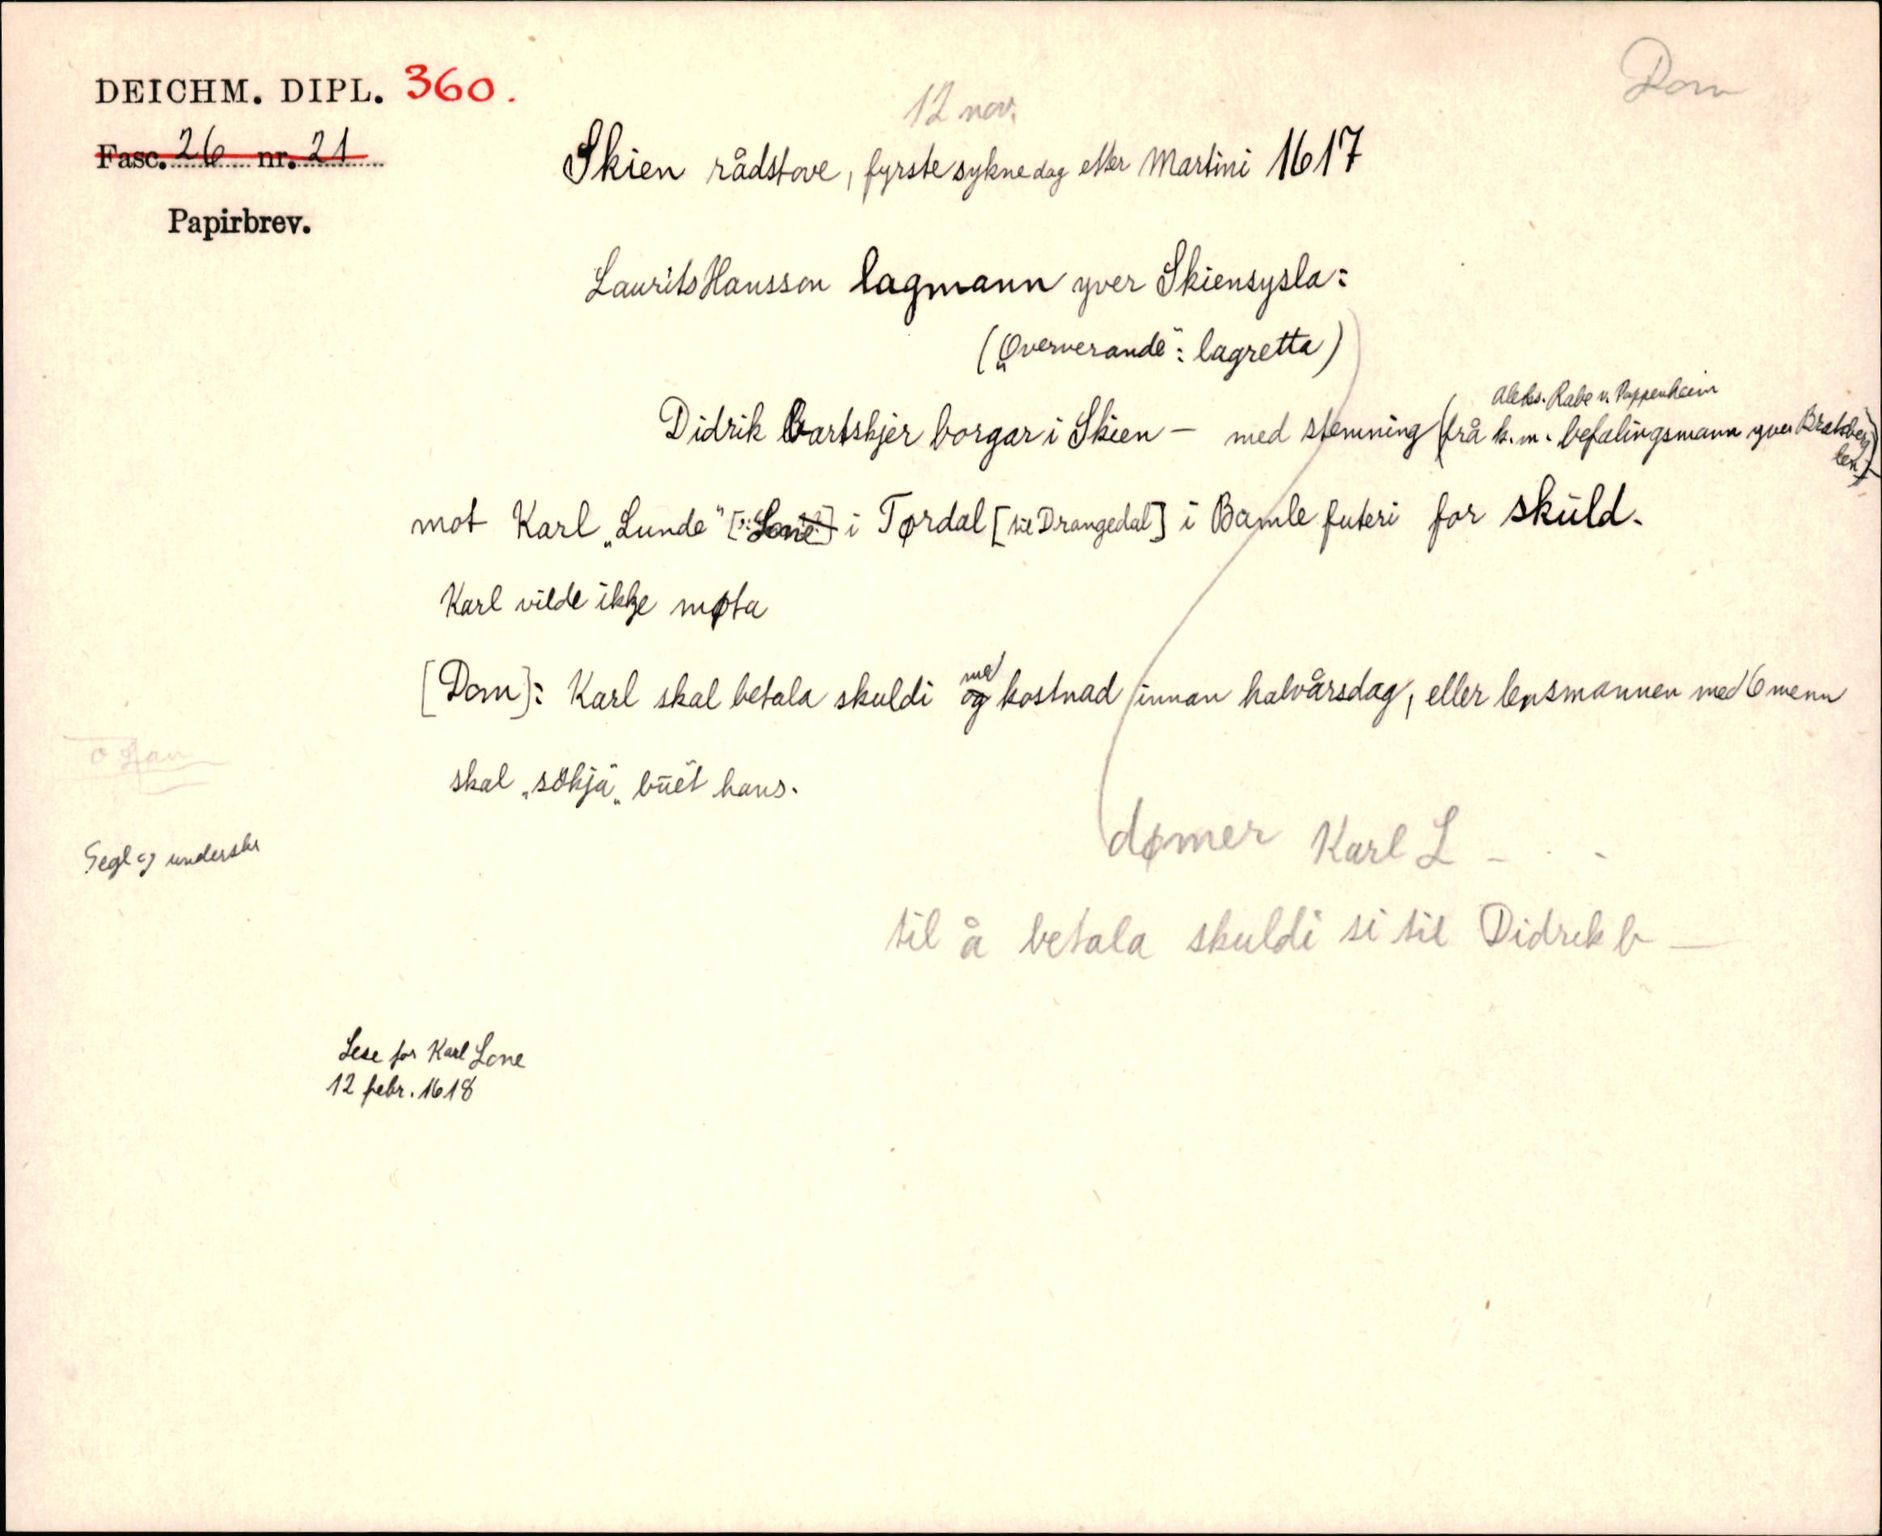 DEICHM. DIPL. 360.
Dom
12 nov.
Fasc. 26 nr. 21
Skien rådstove, fyrste sykne dag etter Martini 1617
Papirbrev.
Laurits Hansson lagmann yver Skiensysla:
(„Ververande": lagretta)
Aleks. Rabe v. Pappenheim
Didrik bartskjer borgar i Skien – med stemning (frå k.m. befalingsmann yver Bratsberg len)
mot Karl „Lunde" [„: Lone"] i Tørdal [til Drangedal] i Bamle futeri for skuld.
Karl vilde ikkje møta
[Dom]: Karl skal betala skuldi og med kostnad innan halvårsdag, eller lensmannen med 6 menn
skal „søkja" buet hans.
Segl og underskr
dømer Karl L – . . -
til å betala skuldi si til Didrik b –
Lese for Karl Lone
12 febr. 1618